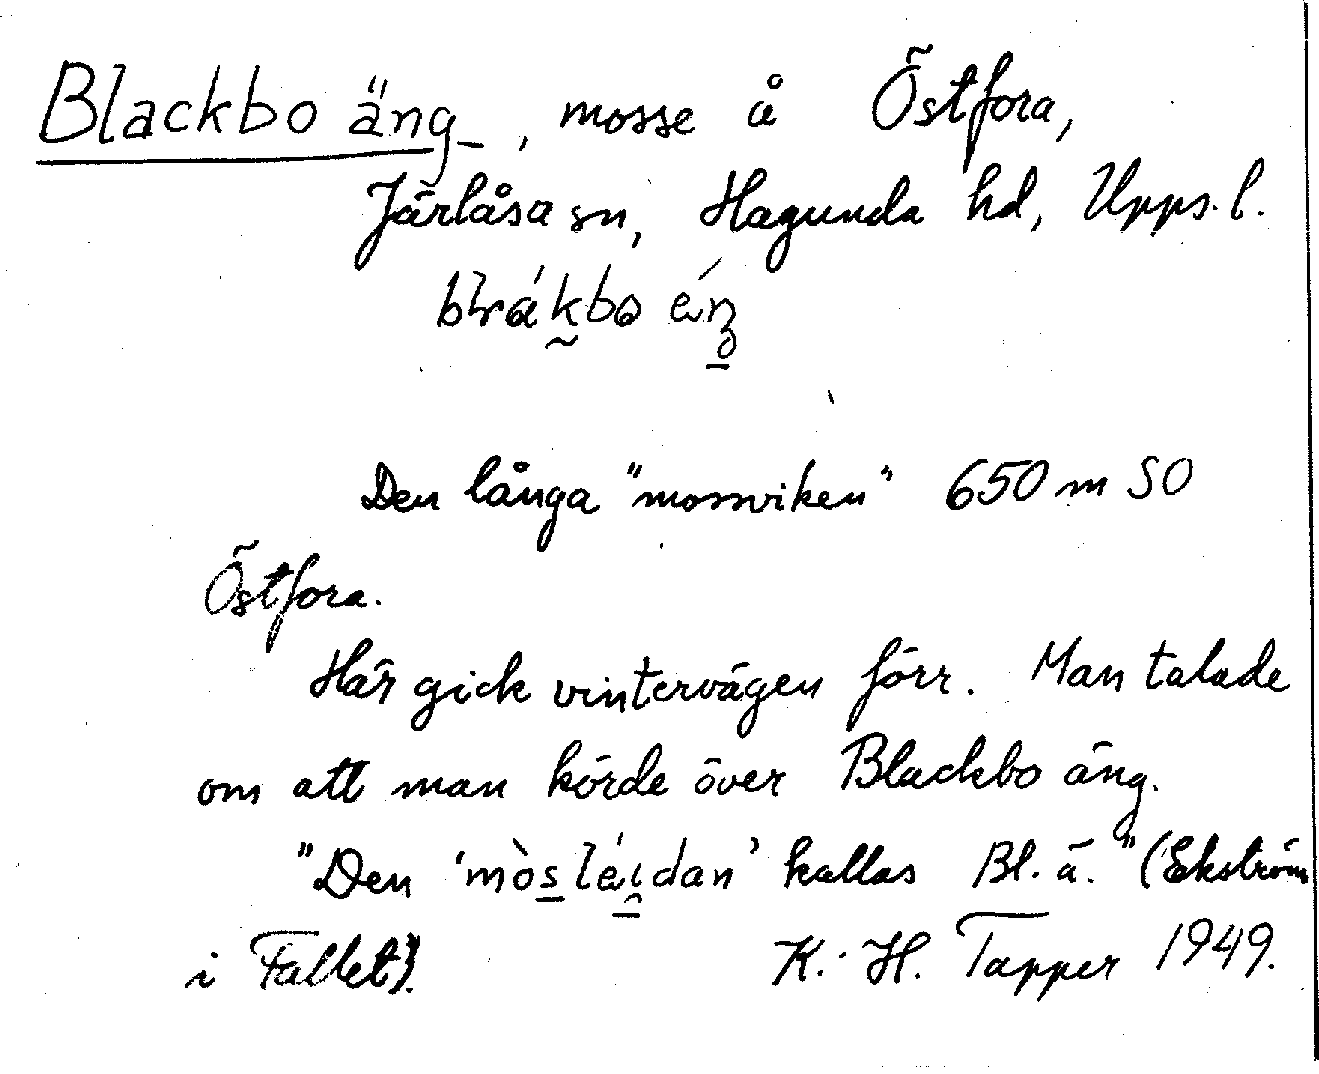 Blackbo äng, mosse å Östfora,
Järlåsa sn, Hagunda hd, Upps. l.
Den långa "mossviken" 650 m SO
Östfora.
Här gick vintervägen förr. Man talade
om att man körde över Blackbo äng.
"Den 'mòsléi̯dan' kallas Bl. ä." (Ekström
i Fallet).
K.-H. Tapper 1949.